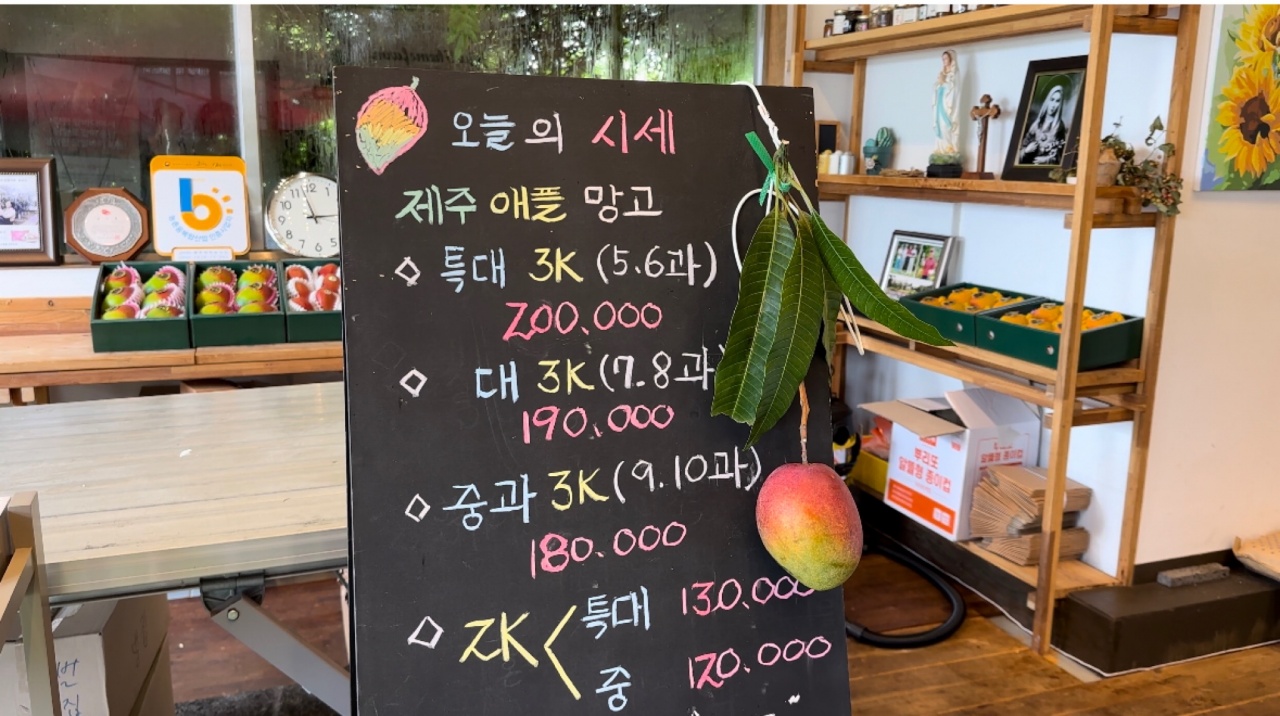 오늘의 시세
제주 애플 망고
◇ 특대 3K (5.6과)
200.000
◇ 대 3K (7.8과
190.000
◇ 중과 3K (9.10과)
180.000
◇ 2K < 특대 130.000
중 120.000
뿌리또
알뜰형 종이컵
벌집